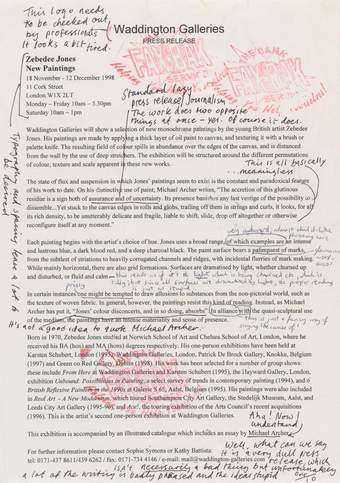 This logo needs
to be checked out
by professionals
It looks a bit tired.
Waddington Galleries
PRESS RELEASE
Zebedee Jones
New Paintings
18 November - 12 December 1998
11 Cork Street
London W1X 2LT
Monday – Friday 10am – 5.30pm
Saturday 10am – 1pm
Standard lazy
press release / Journalism
The work does two opposite
things at once – yes. Of course it does.
Typography and spacing leave a lot to be desired
Waddington Galleries will show a selection of new monochrome paintings by the young British artist Zebedee
Jones. His paintings are made by applying a thick layer of oil paint to canvas, and texturing it with a brush or
palette knife. The resulting field of colour spills in abundance over the edges of the canvas, and is distanced
from the wall by the use of deep stretchers. The exhibition will be structured around the different permutations
of colour, texture and scale apparent in these new works.
This is all basically
...meaningless
The state of flux and suspension in which Jones' paintings seem to exist is the constant and paradoxical feature
of his work to date. On his distinctive use of paint, Michael Archer writes, "The accretion of this glutinous
residue is a sign both of assurance and of uncertainty. Its presence banishes any last vestige of the possibility is
dissemble...Yet stuck to the canvas edges in rolls and globs, trailing off them in strings and curls, it looks, for all
its rich density, to be unutterably delicate and fragile, liable to shift, slide, drop off altogether or otherwise
reconfigure itself at any moment."
Each painting begins with the artist's choice of hue. Jones uses a broad range, of which examples are an intense
and lustrous blue, a dark blood red, and a deep charcoal black. The paint surface bears a palimpsest of marks,
from the subtlest of striations to heavily corrugated channels and ridges, with incidental flurries of mark making.
While mainly horizontal, there are also grid formations. Surfaces are dramatised by light, whether charmed up
and disturbed, or fluid and calm
In certain instances one might be tempted to draw allusions to substances from the non-pictorial world, such as
the texture of woven fabric. In general, however, the paintings resist this kind of reading. Instead, as Michael
Archer has put it, "Jones' colour disconnects, and in so doing, absorbs" In alliance with the quasi-sculptural use
of the medium, the paintings have an intense materiality and sense of presence.
It's not a good idea to quote Michael Archer.
Born in 1970, Zebedee Jones studied at Norwich School of Art and Chelsea School of Art, London, where he
received his BA (hons) and MA (hons) degrees respectively. His one-person exhibitions have been held at
Karsten Schubert (1995) Waddington Galleries, London, Patrick De Brock Gallery, Knokke, Belgium
(1997) and Green on Red Gallery, Dublin (1998). His work has been selected for a number of group shows:
these include From Here at Waddington Galleries and Karsten Schubert (1995), the Hayward Gallery, London,
exhibition Unbound: Possibilities in Painting, a select survey of trends in contemporary painting (1994), and 6
British Reflexive Painters at Galerie S 65, Aalst, Belgium (1995). His paintings were also included
in Real Art – A New Modernism, which toured Southampton City Art Gallery, the Stedelijk Museum, Aalst, and
Leeds City Art Gallery (1995-96), and the touring exhibition of the Arts Council's recent acquisitions
(1996). This is the artist's second one-person exhibition at Waddington Galleries.
Ah! Now I
understand,
This exhibition is accompanied by an illustrated catalogue which includes an essay by Michael Archer.
For further information please contact Sophie Symons or Kathy Battista:
tel: 0171-437 8611/439 6262 / fax: 0171-734 4146 / e-mail: mail@waddington-galleries.com
Well, what can we say
It is a very dull press
release, which
isn't necessarily a bad thing but unfortunately
a lot of the writing is badly phrased and the ideas stupid